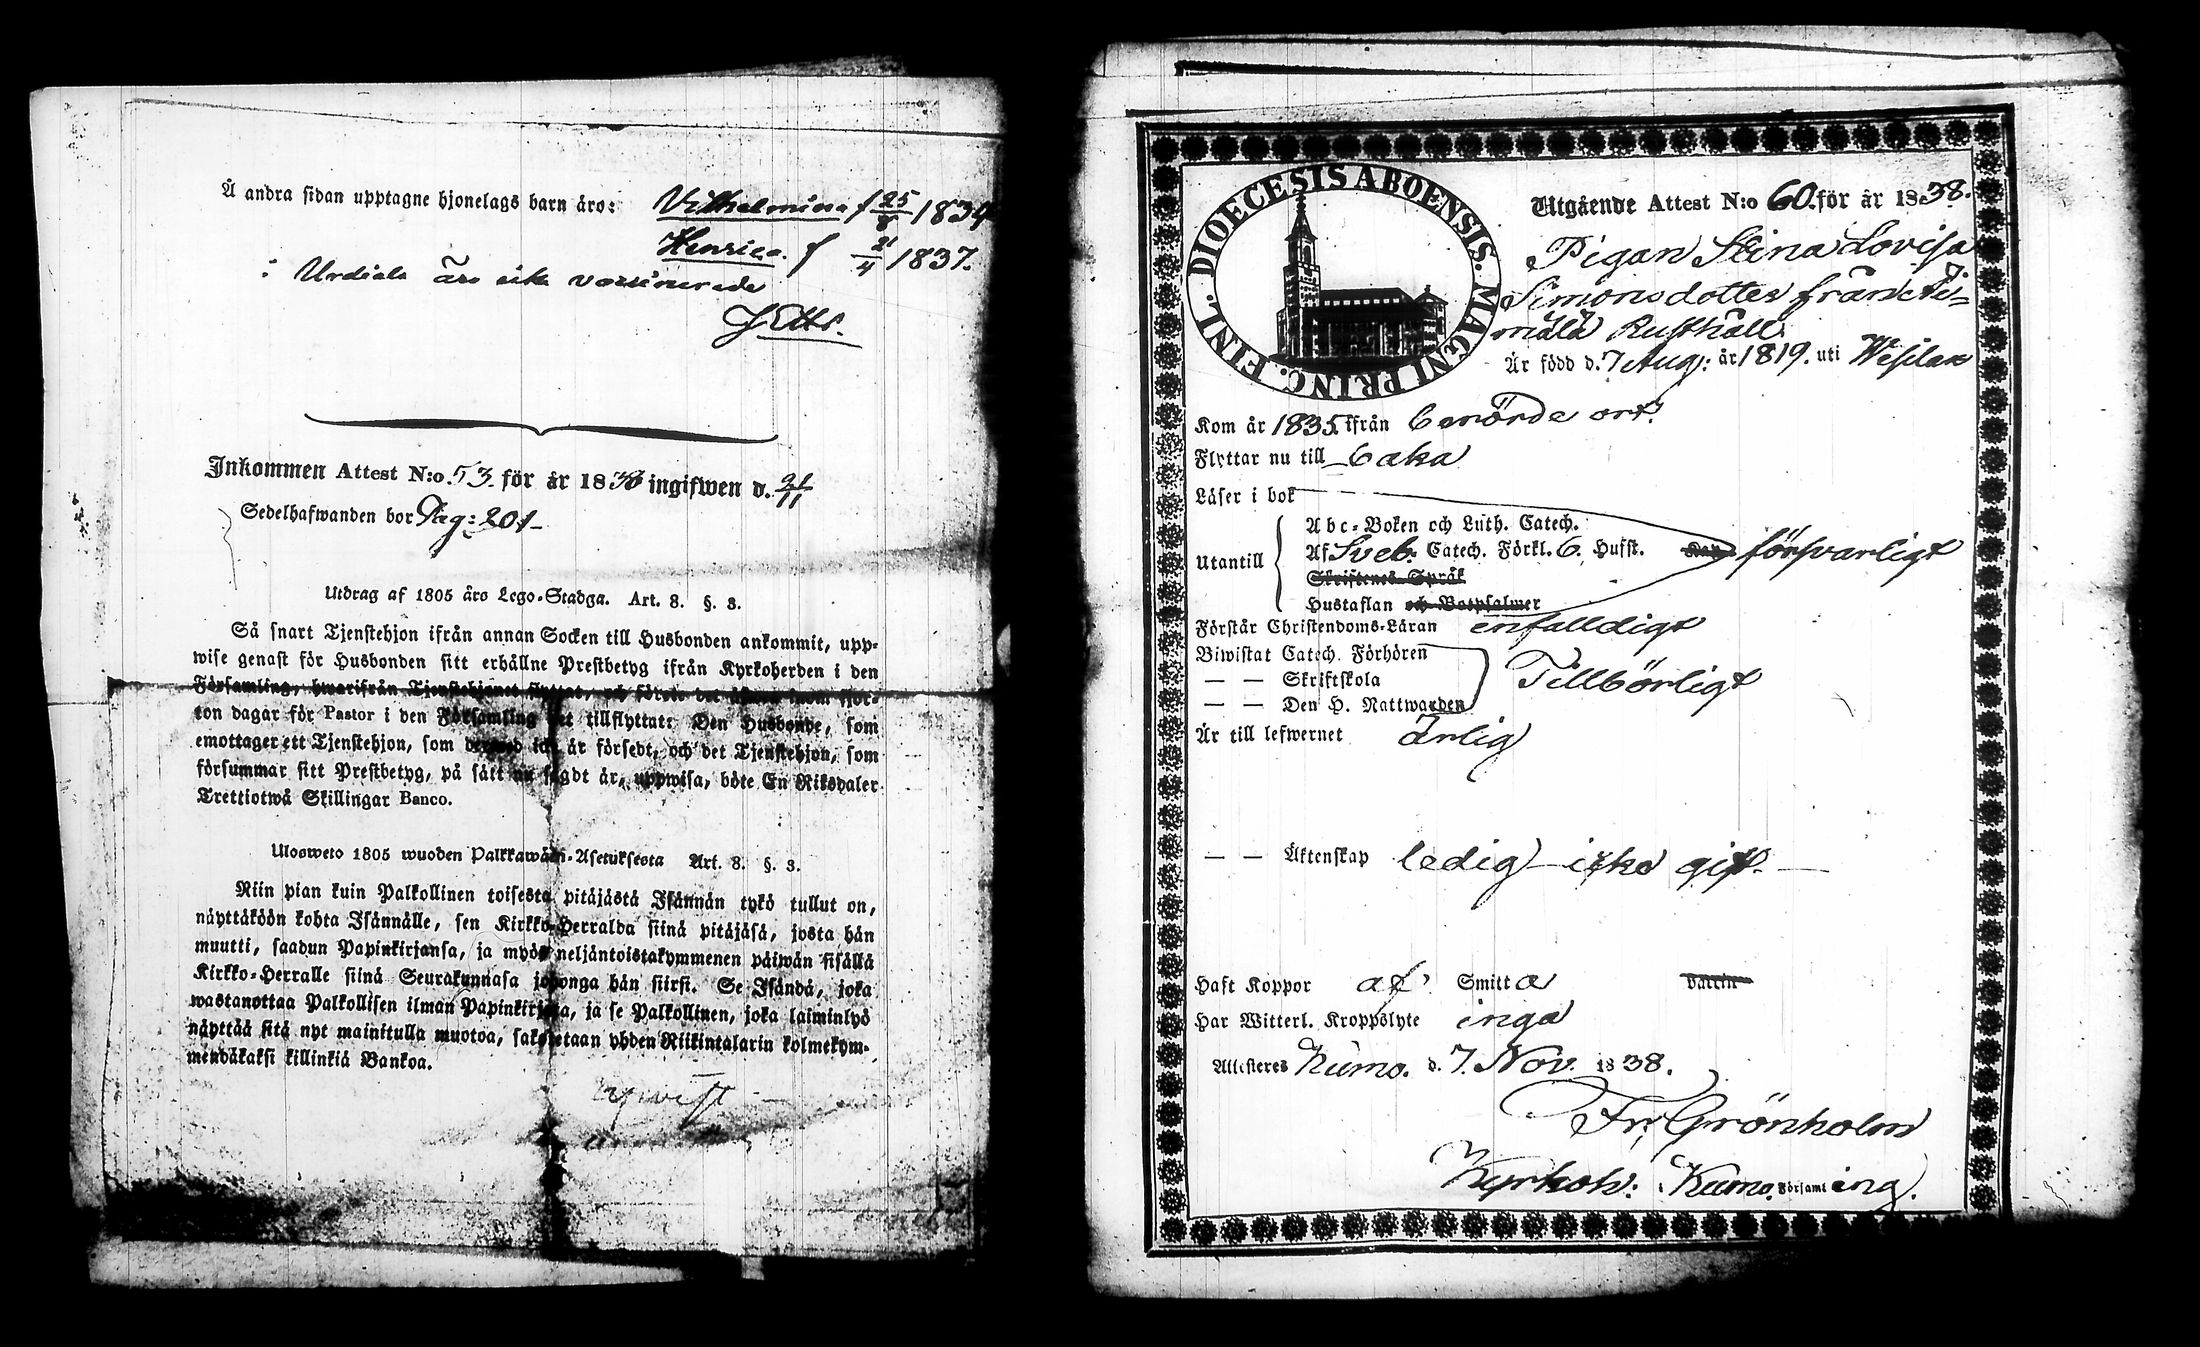 Å andra sidan upptagne hjonelags barn äro: Vilhelmina f 25/8 1834
Henrica. f 21/4 1837.
i Urdiala äro icke vaccinerade
Inkommen Attest N:o 53. för år 1838 ingifwen d. 21/11
Sedelhafwanden bor Pag: 201
Utdrag af 1805 års Lego-Stadga. Art. 8. §. 3.
Så snart Tjenstehjon ifrån annan Socken till Husbonden ankommit, upp-
wise genast för Husbonden sitt erhållne Prestbetyg ifrån Kyrkoherden i den
Församling, hwarifrån Tjenstehjonet flyttat, och förete det äfwen inom fjor-
ton dagar för Pastor i den Församling det tillflyttat: Den Husbonde, som
emottager ett Tjenstehjon, som dermed icke är försedt, och det Tjenstehjon, som
försummar sitt Prestbetyg, på sätt nu sagdt är, uppwisa, böte En Riksdaler
Trettiotwå Skillingar Banco.
Ulosweto 1805 wuoden Palkkawäen-Asetuksesta Art. 8. §. 3.
Niin pian kuin Palkollinen toisesta pitäjästä Isännän tykö tullut on,
näyttäköön kohta Isännälle, sen Kirkko-Herralda siinä pitäjäsä, josta hän
muutti, saadun Papinkirjansa, ja myös neljäntoistakymmenen päiwän sisällä
Kirkko-Herralle siinä Seurakunnasa johonga hän siirsi. Se Isändä, joka
wastanottaa Palkollisen ilman Papinkirjata, ja se Palkollinen, joka laiminlyö
näyttää sitä nyt mainitulla muotoa, sakoitetaan yhden Riikintalarin kolmekym-
mendäkaksi killinkiä Bankoa.
DIOECESIS ABOENSIS. MAGNI PRINC. FINL.
Utgående Attest N:o 60. för år 1838.
Pigan Stina Lovisa
Simonsdotter från
måla Rusthåll
Är född d. 7 Aug: år 1819. uti Wesilax
Kom år 1835 ifrån berörde ort.
Flyttar nu till
Läser i bok
Abc-Boken och Luth. Catech.
Utantill Af Sveb. Catech. Förkl. 6. Hufst. försvarligt
Skriftenes Språk
Hustaflan och Botpsalmer
Förstår Christendoms-Läran enfalldigt
Biwistat Catech. Förhören
— — Skriftskola Tillbörligt
— — Den H. Nattwarden
Är till lefwernet Ärlig
— — Äktenskap ledig icke gift.
Haft Koppor af Smitta
Har Witterl. Kroppslyte inga
Attesteres Kumo. d. 7. Nov. 1838.
Fr. Grönholm
Kyrkoh: i Kumo. Församling.